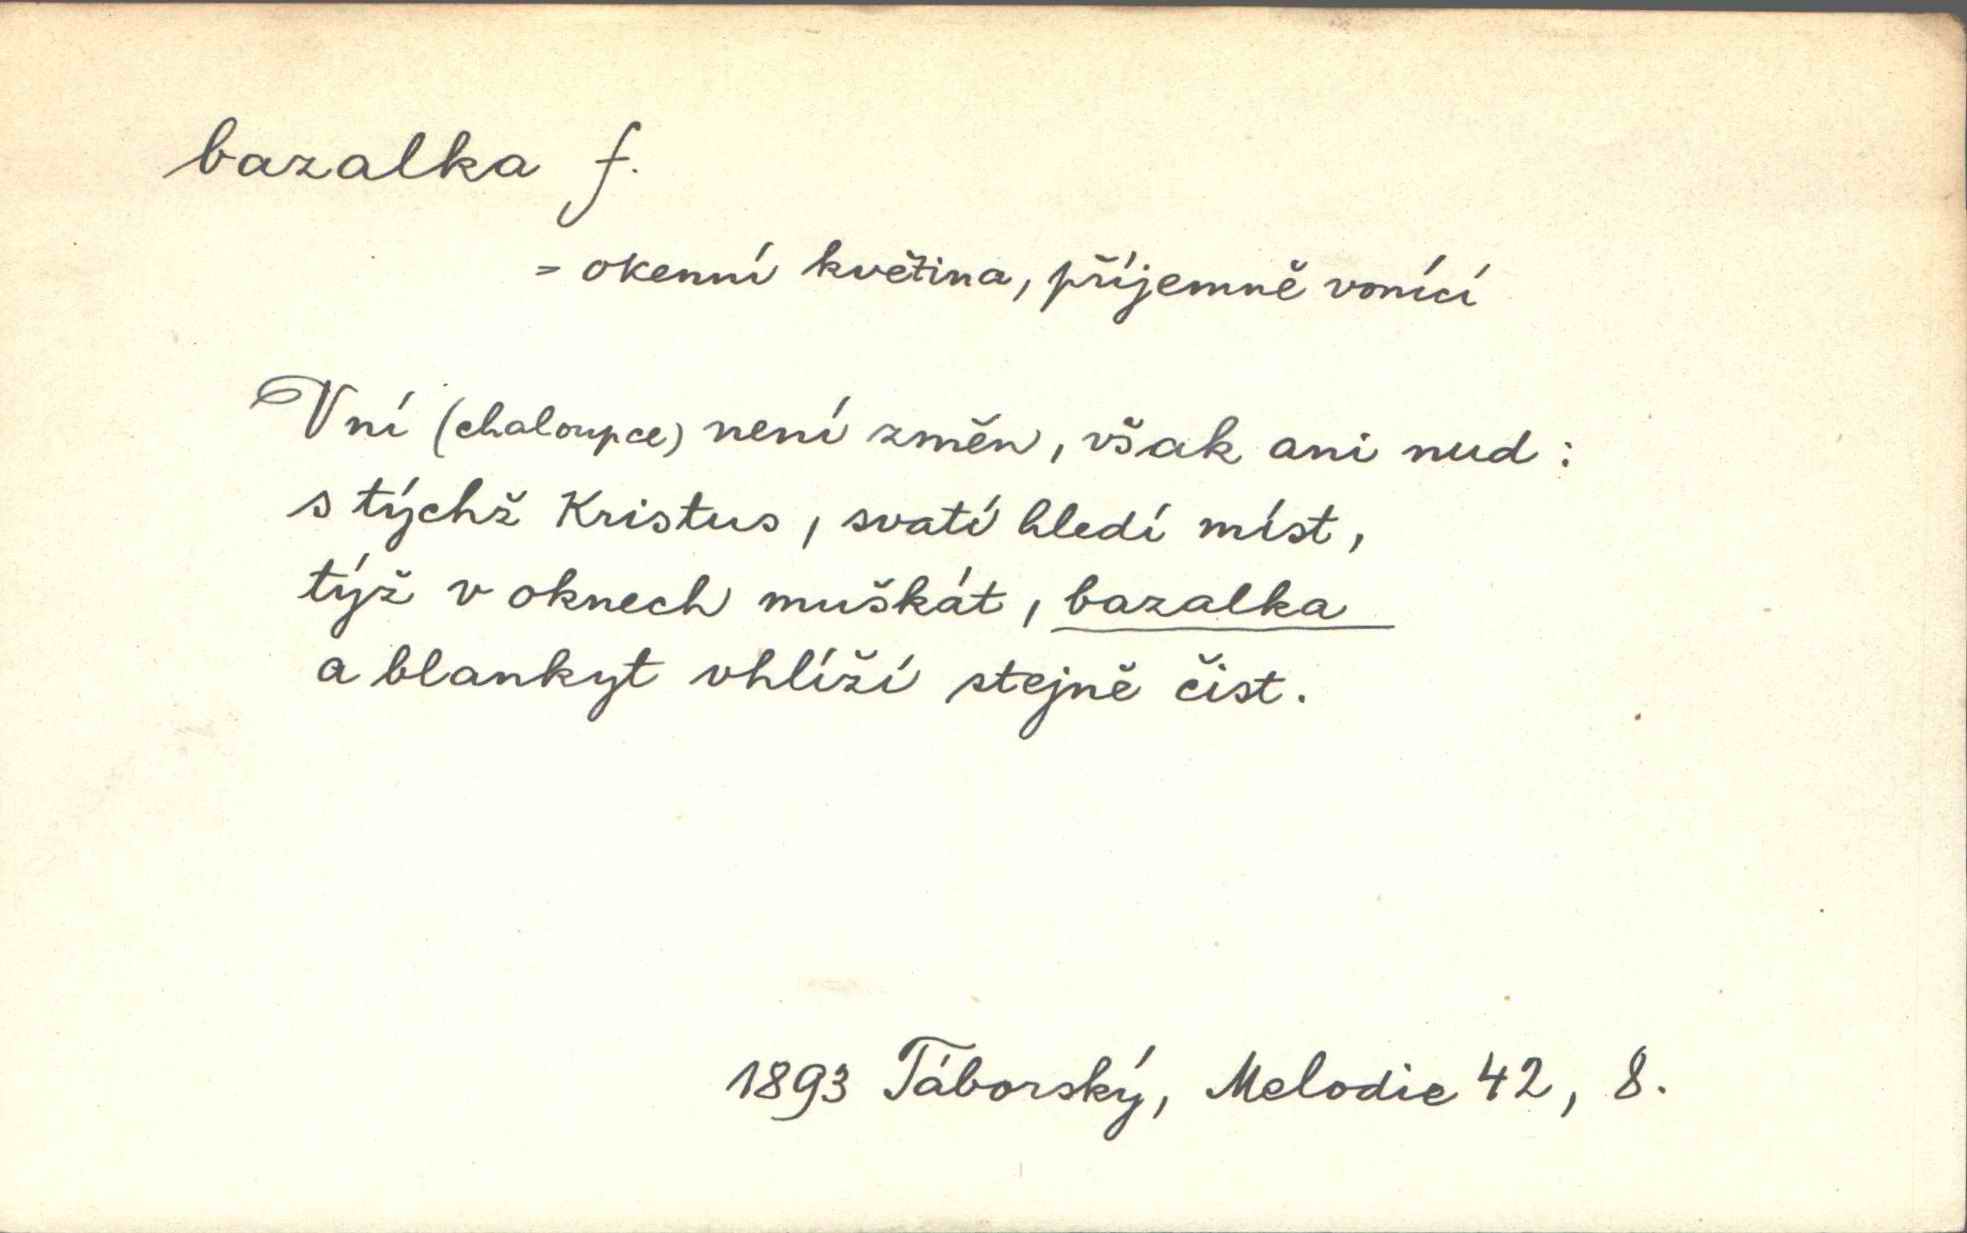 bazalka f.
= okenní květina, příjemně vonící
V ní (chaloupce) není změn, však ani nud:
s týchž Kristus, svatí hledí míst,
týž v oknech muškát, bazalka
a blankyt vhlíží stejně čist.
1893 Táborský, Melodie 42, 8.